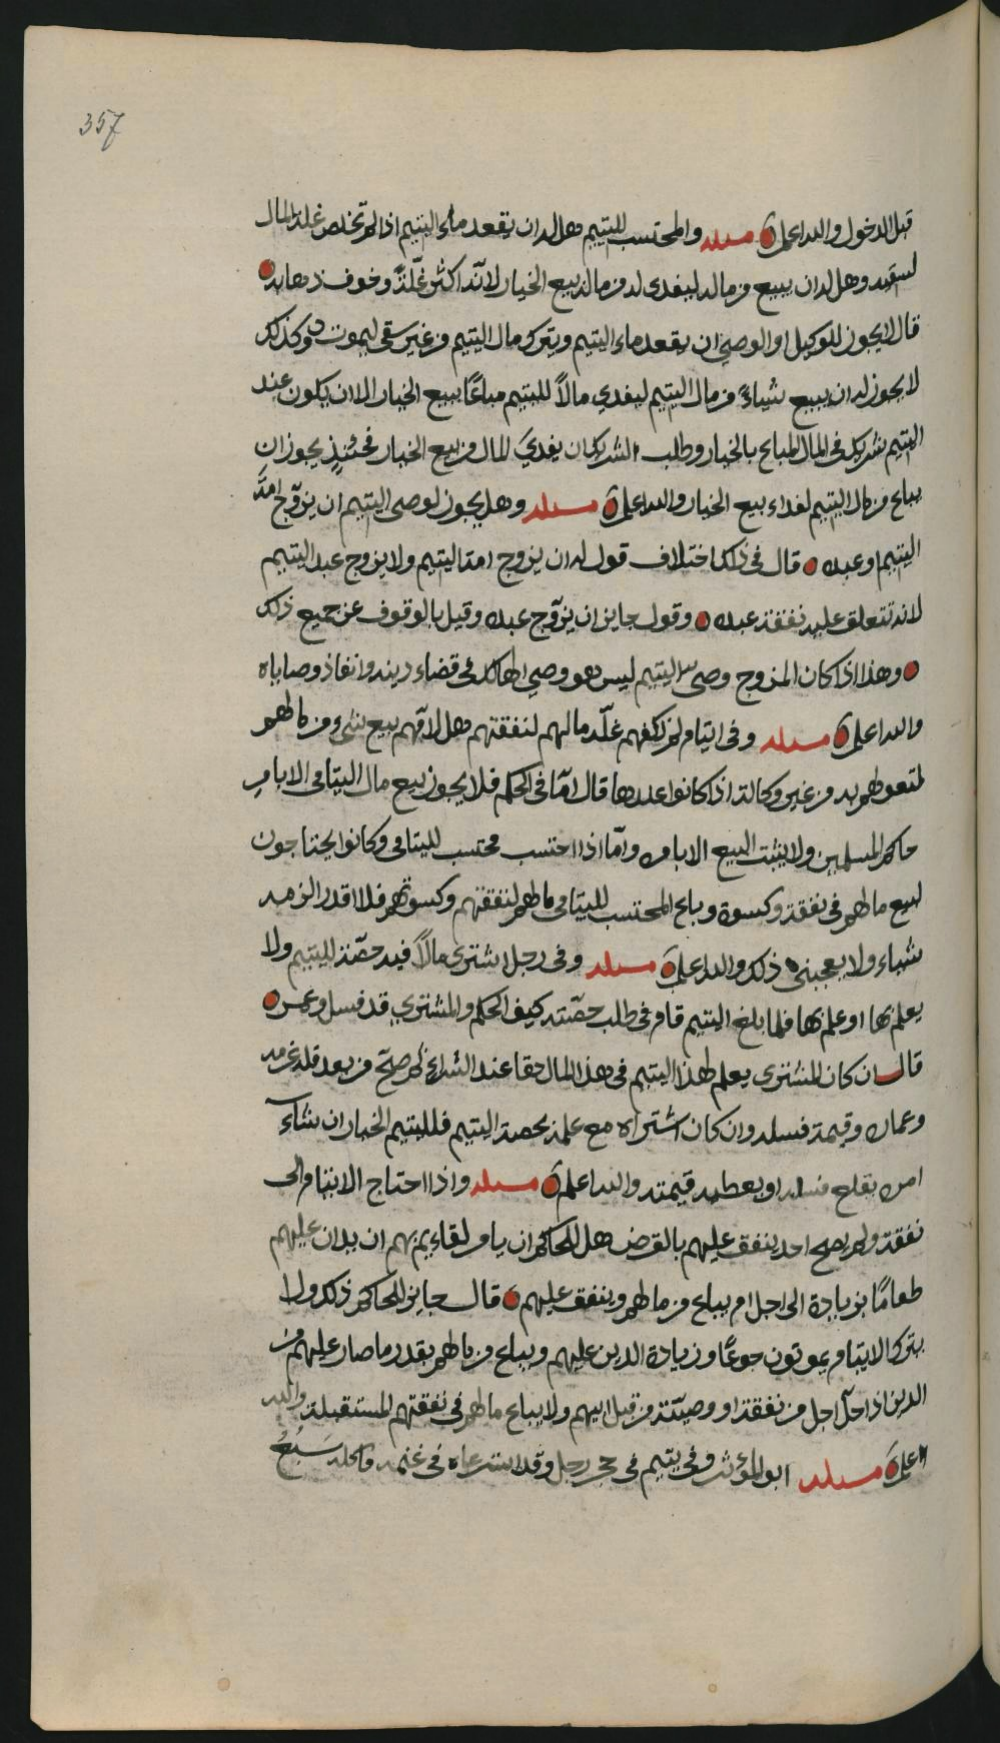 357
قبل الدخول والله اعلم مسئله والمحتسب لليتيم هل له ان يقعد ماء اليتيم اذا لم تخلص غلة المال
لسقيه وهل له ان يبيع من ماله ليفدى له من ماله بيع الخيار لانه اكثر غلّة وخوف ذهابه
قال لا يجوز للوكيل او الوصي ان يقعد ماء اليتيم ويترك مال اليتيم من غير سقى ليموت وكذلك
لا يجوز له ان يبيع شياءً من مال اليتيم ليفدي مالاً لليتيم مباعًا ببيع الخيار الا ان يكون عند
اليتيم شريك في المال المباع بالخيار وطلب الشريك ان يفديَ المال من بيع الخيار فحينئذٍ يجوز ان
يباع من مال اليتيم لفداء بيع الخيار والله اعلم مسئله وهل يجوز لوصي اليتيم ان يزوّج امة
اليتيم او عبده قال في ذلك اختلاف قول له ان يزوج امة اليتيم ولا يزوج عبد اليتيم
لانه تتعلق عليه نفقة عبده وقول جايز ان يزوّج عبده وقيل بالوقوف عن جميع ذلك
وهذا اذا كان المزوج وصي اليتيم ليس هو وصي الهالك في قضاء دينه وانفاذ وصاياه
والله اعلم مسئله وفي ايتام لم تكفهم غلّة مالهم لنفقتهم وهل لامّهم بيع شيء من مالهم
لتعولهم به من غير وكالة اذا كانوا عندها قال امّا في الحكم فلا يجوز بيع مال اليتامى الا بامر
حاكم المسلمين ولا يثبت البيع الا بامره وامّا اذا احتسب محتسب لليتامى وكانوا يحتاجون
لبيع مالهم في نفقة وكسوة وباع المحتسب لليتامى مالهم لنفقتهم وكسوتهم فلا اقدر الزمه
شياء ولا يعجبني ذلك والله اعلم مسئله وفي رجل اشترى مالاً فيه حصّة لليتيم ولا
يعلم بها او علم بها فلما بلغ اليتيم قام في طلب حصّته كيف الحكم والمشتري قد فسل وعمر
قال ان كان المشترى يعلم لهذا اليتيم في هذا المال حقا عند الشراء ثم صح من بعد فله غرمه
وعماره وقيمة فسله وان كان اشتراه مع علمه بحصة اليتيم فلليتيم الخيار ان شاء
امره بقلع فسله او يعطيه قيمته والله اعلم مسئله واذا احتاج الايتام الى
نفقة ولم يصح احد ينفق عليهم بالقرض هل للحاكم ان يامر القايم بهم ان يدان عليهم
طعامًا بزيادة الى اجل ام يباع من مالهم وينفق عليهم قال جايز للحاكم ذلك ولا
يترك الايتام يموتون جوعًا وزيادة الدين عليهم ويباع من مالهم بقدر ما صار عليهم من
الدين اذا حلّ اجل من نفقة او وصيّة من قبل ابيهم ولا يباع مالهم في نفقتهم المستقبلة والله
اعلم مسئله ابو المؤثر وفي يتيم في حجر رجل وقد استرعاه في غنمه فاكله سَبُعٌ